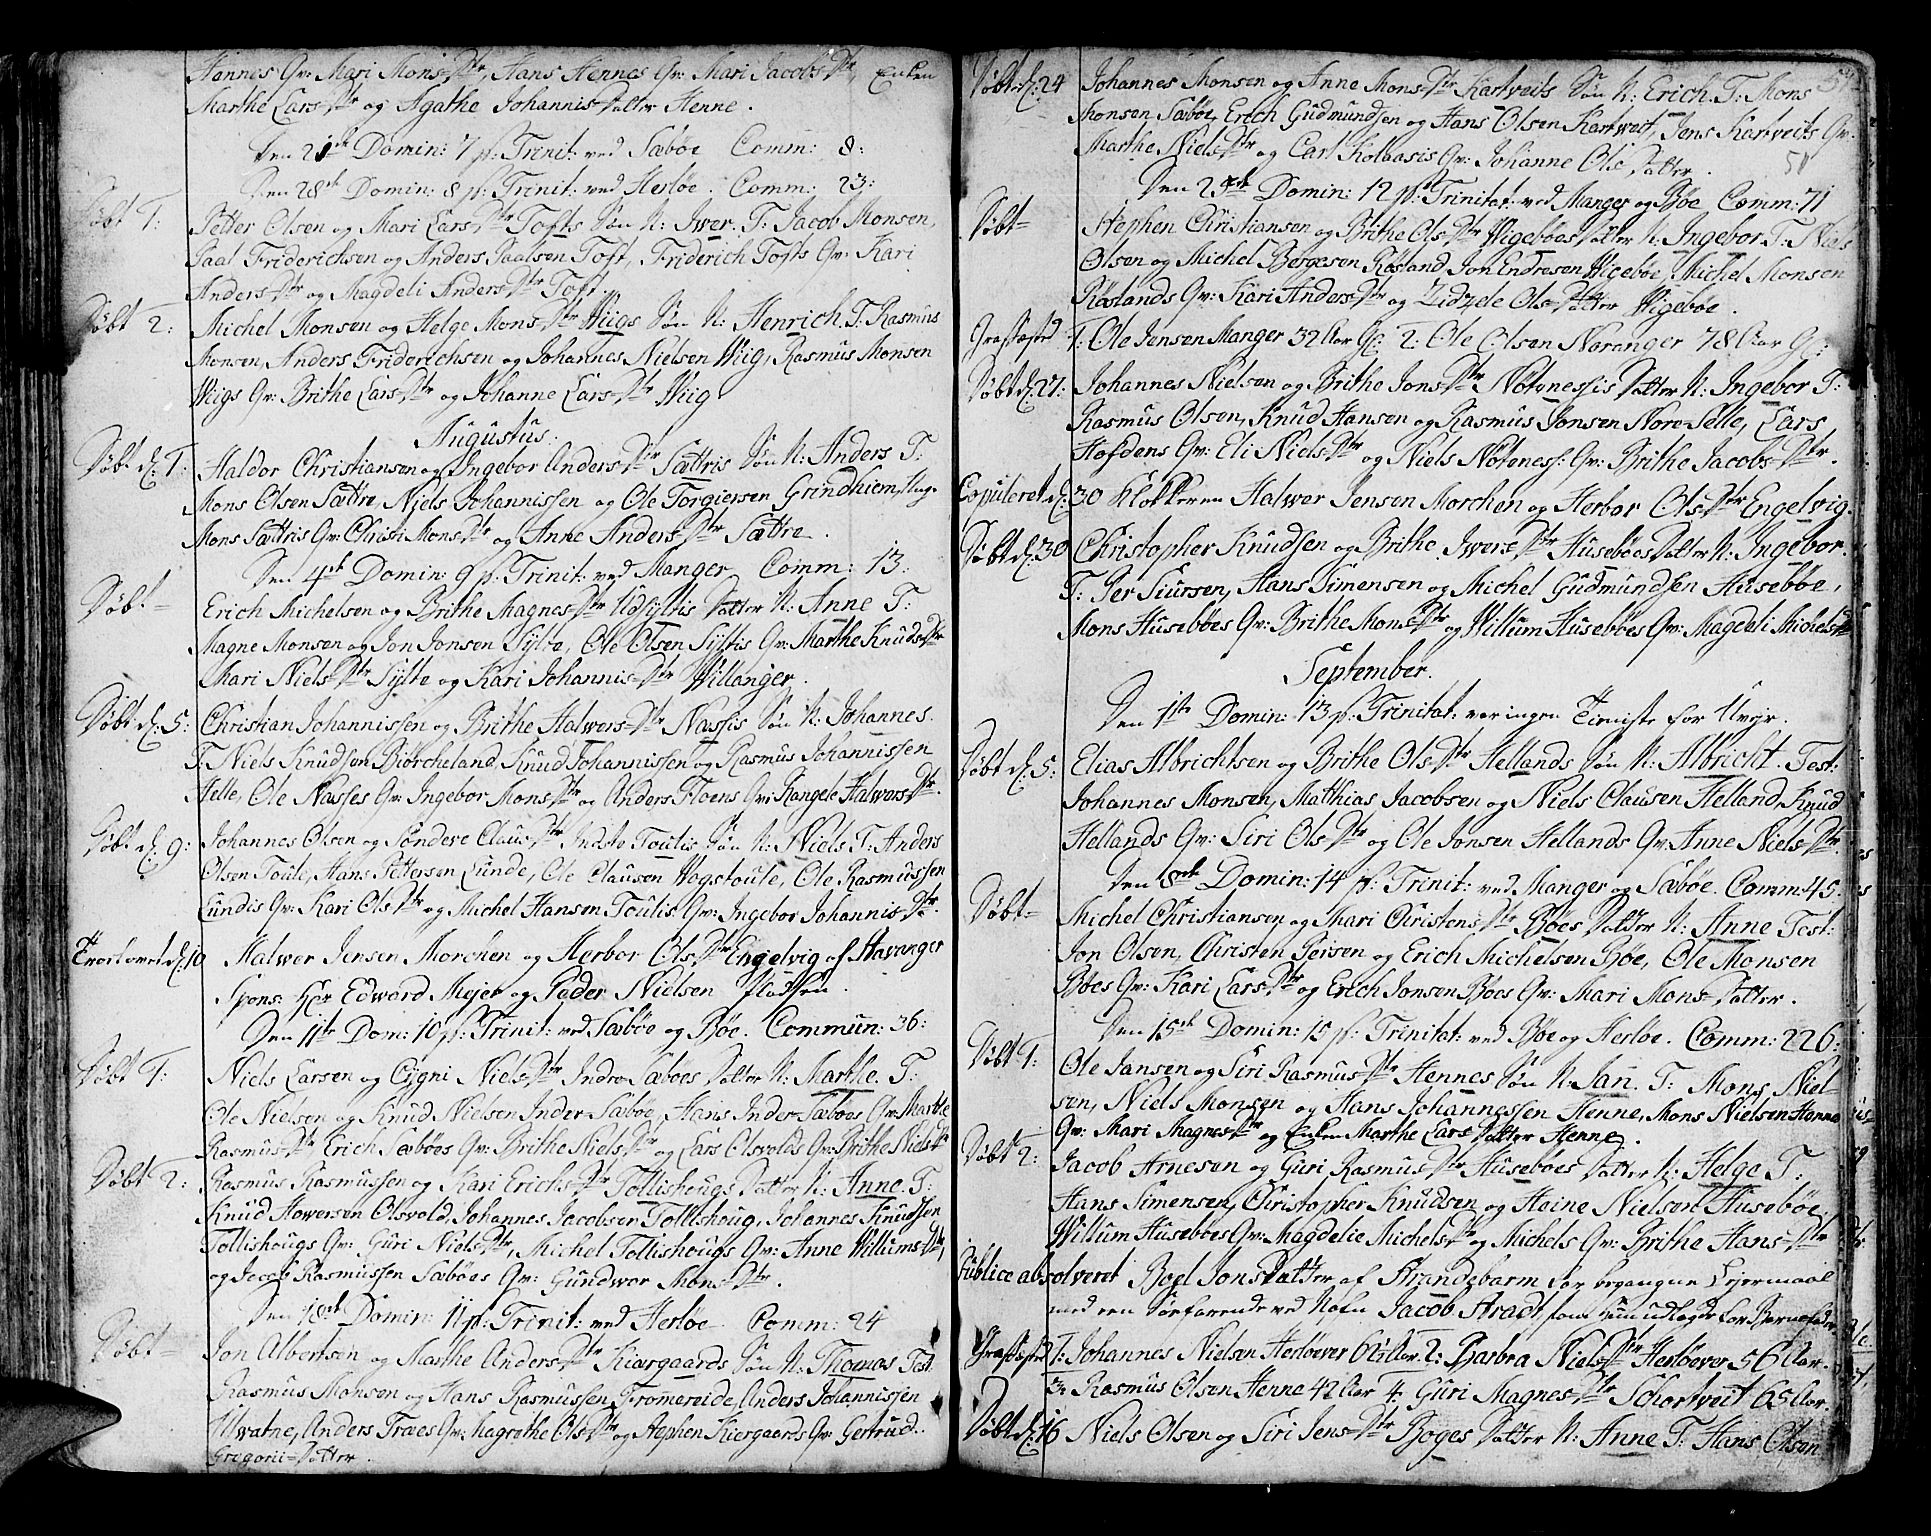 Hannes Qv: Mari Mons Dtr, Hans Hennes Qv: Mari Jacobs Dtr, Enken
Marthe Lars Dtr og Agathe Johannis Datter Henne.
Den 21de Domin: 7 p: Trinit: ved Sæbøe Comm: 8:
Den 28de Domin: 8 p: Trinit: ved Herløe. Comm: 23:
Døbt 1: Petter Olsen og Mari Lars Dtr Tofts Søn N: Iwer. T: Jacob Monsen,
Paal Friderichsen og Anders Paalsen Toft, Friderich Tofts Qv: Kari
Anders Dtr og Magdeli Anders Dtr Toft.
Døbt 2: Michel Monsen og Helge Mons Dtr Wiigs Søn N: Henrich. T: Rasmus
Monsen, Anders Friderichsen og Johannes Nielsen Wiig, Rasmus Monsen
Wiigs Qv: Brithe Lars Dtr og Johanne Lars Dtr Wiig
Augustus.
Døbt d: 1: Haldor Christiansen og Ingebor Anders Dtr Sættris Søn N: Anders T:
Mons Olsen Sættre, Niels Johannissen og Ole Torgiersen Grindhiem,
Mons Sættris Qv: Christi Mons Dtr og Anne Anders Dtr Sættre.
Den 4de Domin: 9 p: Trinit: ved Manger Comm: 13.
Døbt = Erich Michelsen og Brithe Magnes Dtr Udsyltis Datter N: Anne T:
Magne Monsen og Jon Jonsen Sylte, Ole Olsen Syltis Qv: Marthe Knuds Dtr
Mari Niels Dtr Sylte og Kari Johannis Dtr Willanger.
Døbt d: 5: Christian Johannissen og Brithe Halwers Dtr Nassis Søn N: Johannes.
T: Niels Knudsen Biørcheland, Knud Johannissen og Rasmus Johannissen
Helle, Ole Nasses Qv: Ingebor Mons Dtr og Anders Floens Qv: Rangele Halwers Dtr.
Døbt d: 9: Johannes Olsen og Søndere Claus Dtr Indste Toulis Søn N: Niels T: Anders
Olsen Toule, Hans Pettersen Lunde, Ole Clausen Hogstoule, Ole Rasmussen
Lundis Qv: Kari Ols Dtr og Michel Hansen Toulis Qv: Ingebor Johannis Dtr.
Troelowet d: 10 Halwer Jensen Morchen og Herbor Ols Dtr Engelvig af Stavanger
Spons: Her Edward Mejer og Peder Nielsen Fladsen.
Den 11te Dom: 10 p: Trinit: ved Sæbøe og Bøe. Commun: 36:
Døbt 1: Niels Larsen og Cygni Niels Dtr Indre Sæbøes Datter N: Marthe. T:
Ole Nielsen og Knud Nielsen Inder Sæbøe, Hans Inder Sæbøes Qv: Marthe
Rasmus Dtr Erich Sæbøes Qv: Brithe Niels Dtr og Lars Olsvolds Qv: Brithe Niels Dtr
Døbt 2: Rasmus Rasmussen og Kari Erichs Dtr Tollishougs Datter N: Anne. T:
Knud Howersen Olsvold, Johannes Jacobsen Tollishoug, Johannes Knudsen
Tollishougs Qv: Guri Niels Dtr, Michel Tollishougs Qv: Anne Willums Dtr,
og Jacob Rasmussen Sæbøes Qv: Gundwor Mons Dtr.
Den 18de Domin: 11 p: Trinit: ved Herløe Comm: 24
Døbt = Jon Albertsen og Marthe Anders Dtr Kiærgaards Søn N: Thomas Test.
Rasmus Monsen og Hans Rasmussen Fromereide, Anders Johannissen
Uwatne, Anders Træes Qv: Magrethe Ols Dtr og Stephen Kiergaards Qv: Gertrud
Gregorii Datter.
Døbt d: 24 Johannes Monsen og Anne Mons Dtr Kartveits Søn N: Erich. T: Mons
Monsen Sæbøe, Erich Gudmundsen og Hans Olsen Kartveit, Jens Kartveits Qv:
Marthe Niels Dtr og Carl Kolaasis Qv: Johanne Ole Datter.
Den 25de Domin: 12 p: Trinitat: ved Manger og Bøe Comm: 71
Døbt = Stephen Christiansen og Brithe Ols Dtr Wigebøes Datter N: Ingebor T: Niels
Olsen og Michel Børgesen Røsland, Jon Endresen Wigebøe, Michel Monsen
Røslands Qv: Kari Anders Dtr og Zidzele Ols Datter Wigebøe.
Jordfæsted 1: Ole Jensen Manger 32 Aar Gl: 2: Ole Olsen Naranger 78 Aar Gl:
Døbt d: 27: Johannes Nielsen og Brithe Jons Dtr Nøtenessis Datter N: Ingebor T:
Rasmus Olsen, Knud Hansen og Rasmus Jonsen Nore Selle, Lars
Hofdens Qv: Eli Niels Dtr og Niels Nøteness: Qv: Brithe Jacobs Dtr.
Copuleret d: 30 Klokkeren Halwer Jensen Morchen og Herbor Ols Dtr Engelvig.
Døbt d: 30 Christopher Knudsen og Brithe Iwers Dtr Husebøes Datter N: Ingebor.
T: Per Siursen, Hans Simensen og Michel Gudmundsen Husebøe,
Mons Husebøes Qv: Brithe Mons Dtr og Willum Husebøes Qv: Magdeli Michels Dtr
September.
Den 1te Domin: 13 p: Trinitat: var ingen Tieniste for Uvejr.
Døbt d: 5: Elias Albrichtsen og Brithe Ols Dtr Hellands Søn N: Albricht. Test:
Johannes Monsen, Matthias Jacobsen og Niels Clausen Helland, Knud
Hellands Qv: Siri Ols Dtr og Ole Jonsen Hellands Qv: Anne Niels Dtr.
Den 8de Domin: 14 p: Trinit: ved Manger og Sæbøe. Comm: 45.
Døbt = Michel Christiansen og Mari Christens Dtr Bøes Datter N: Anne Test:
Jon Olsen, Christen Persen og Erich Michelsen Bøe, Ole Monsen
Bøes Qv: Kari Lars Dtr og Erich Jonsen Bøes Qv: Mari Mons Datter.
Den 15de Domin: 15 p: Trinitat: ved Bøe og Herløe. Comm: 226:
Døbt 1: Ole Jansen og Siri Rasmus Dtr Hennes Søn N: Jan. T: Mons Niel-
sen, Niels Monsen og Hans Johannessen Henne, Mons Nielsen Henne
Qv: Mari Magnes Dtr og Enken Marthe Lars Datter Henne.
Døbt 2: Jacob Arnesen og Guri Rasmus Dtr Husebøes Datter N: Helge T:
Hans Simensen, Christopher Knudsen og Heine Nielsen Husebøe,
Willum Husebøes Qv: Magdelie Michels Dtr og Michels Qv: Brithe Hans Dtr
Publice absolveret Boel Jons Datter af Strandebarm for begangne Leiermaal
med een Søefarende ved Nafn Jacob Stradt, som hun udlagde for Barnefader.
Jordfæsted 1: Johannes Nielsen Herløever 63 Aar. 2: Barbra Niels Dtr Herløever 56 Aar.
3: Rasmus Olsen Henne 42 Aar 4: Guri Magnes Dtr Schortveit 65 Aar.
Døbt d: 16 Niels Olsen og Siri Jens Dtr Boges Datter N: Anne T: Hans Olsen